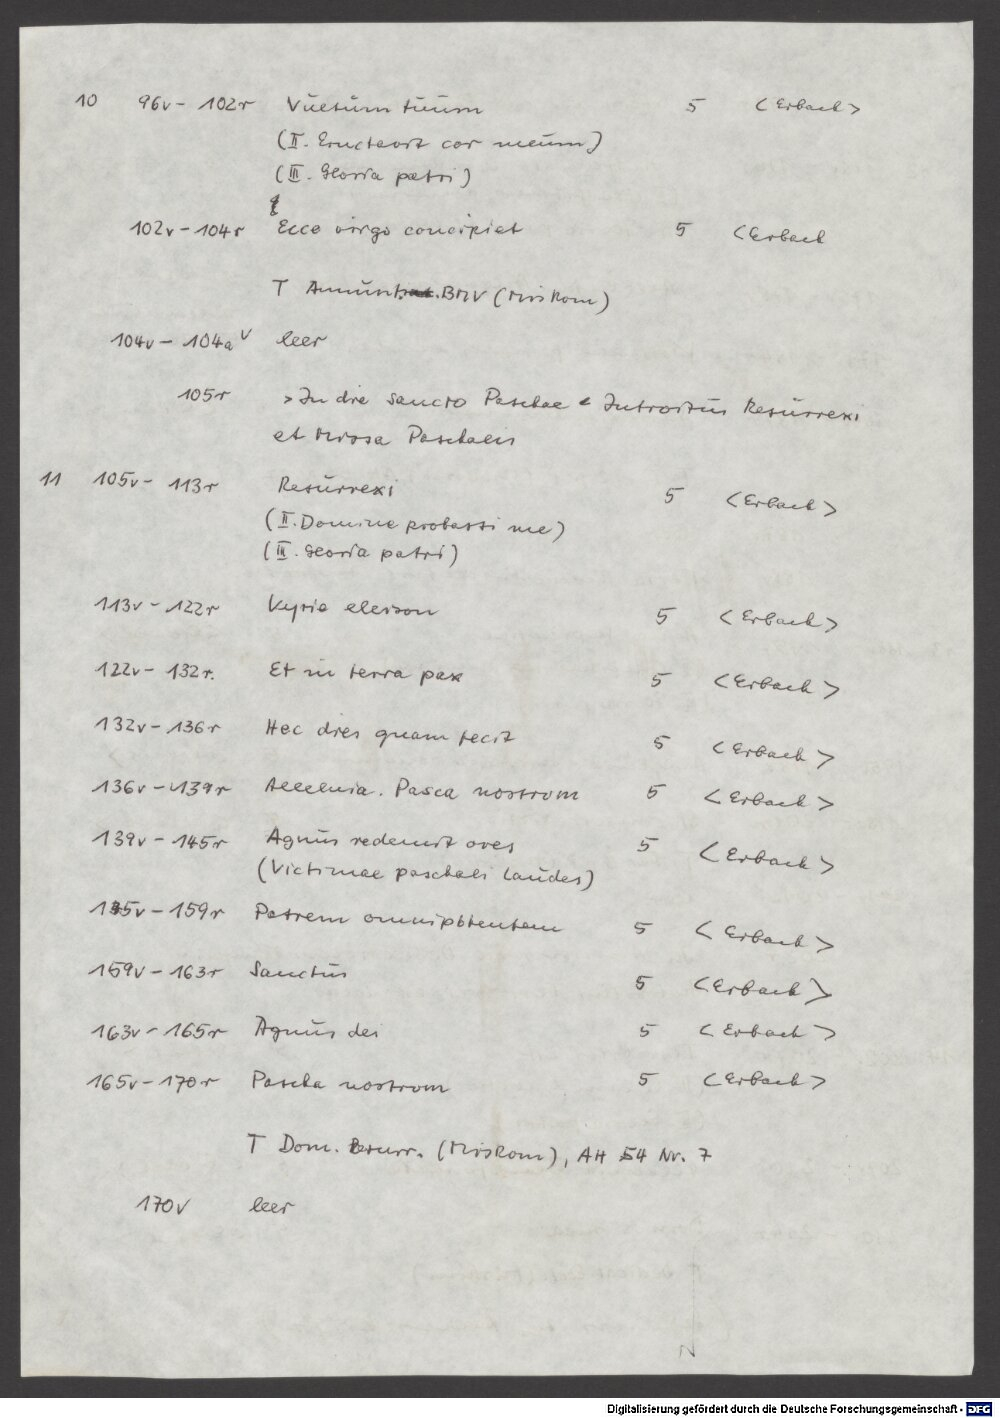 10 96v - 102r Vultum tuum 5 <Erbach>
(II. Eructavit cor meum)
(III. Gloria patri)
102v - 104r Ecce virgo concipiet 5 <Erbach
T Annunt. BMV (MisRom)
104v - 104a v leer
105r >In die sancto Paschae < Introitus Resurrexi
et Missa Paschalis
11 105v - 113r Resurrexi 5 <Erbach>
(II. Domine probasti me)
(III. Gloria patri)
113v - 122r Kyrie eleison 5 <Erbach>
122v - 132r. Et in terra pax 5 <Erbach>
132v - 136r Hec dies quam fecit 5 <Erbach>
136v - 139r Alleluia. Pasca nostrum 5 <Erbach>
139v - 145r Agnus redemit oves 5 <Erbach>
(Victimae paschali laudes)
145v - 159r Patrem omnipotentem 5 <Erbach>
159v - 163r Sanctus 5 <Erbach>
163v - 165r Agnus dei 5 <Erbach>
165v - 170r Pascha nostrum 5 <Erbach>
T Dom. Resurr. (MisRom), AH 54 Nr. 7
170v leer
Digitalisierung gefördert durch die Deutsche Forschungsgemeinschaft - DFG